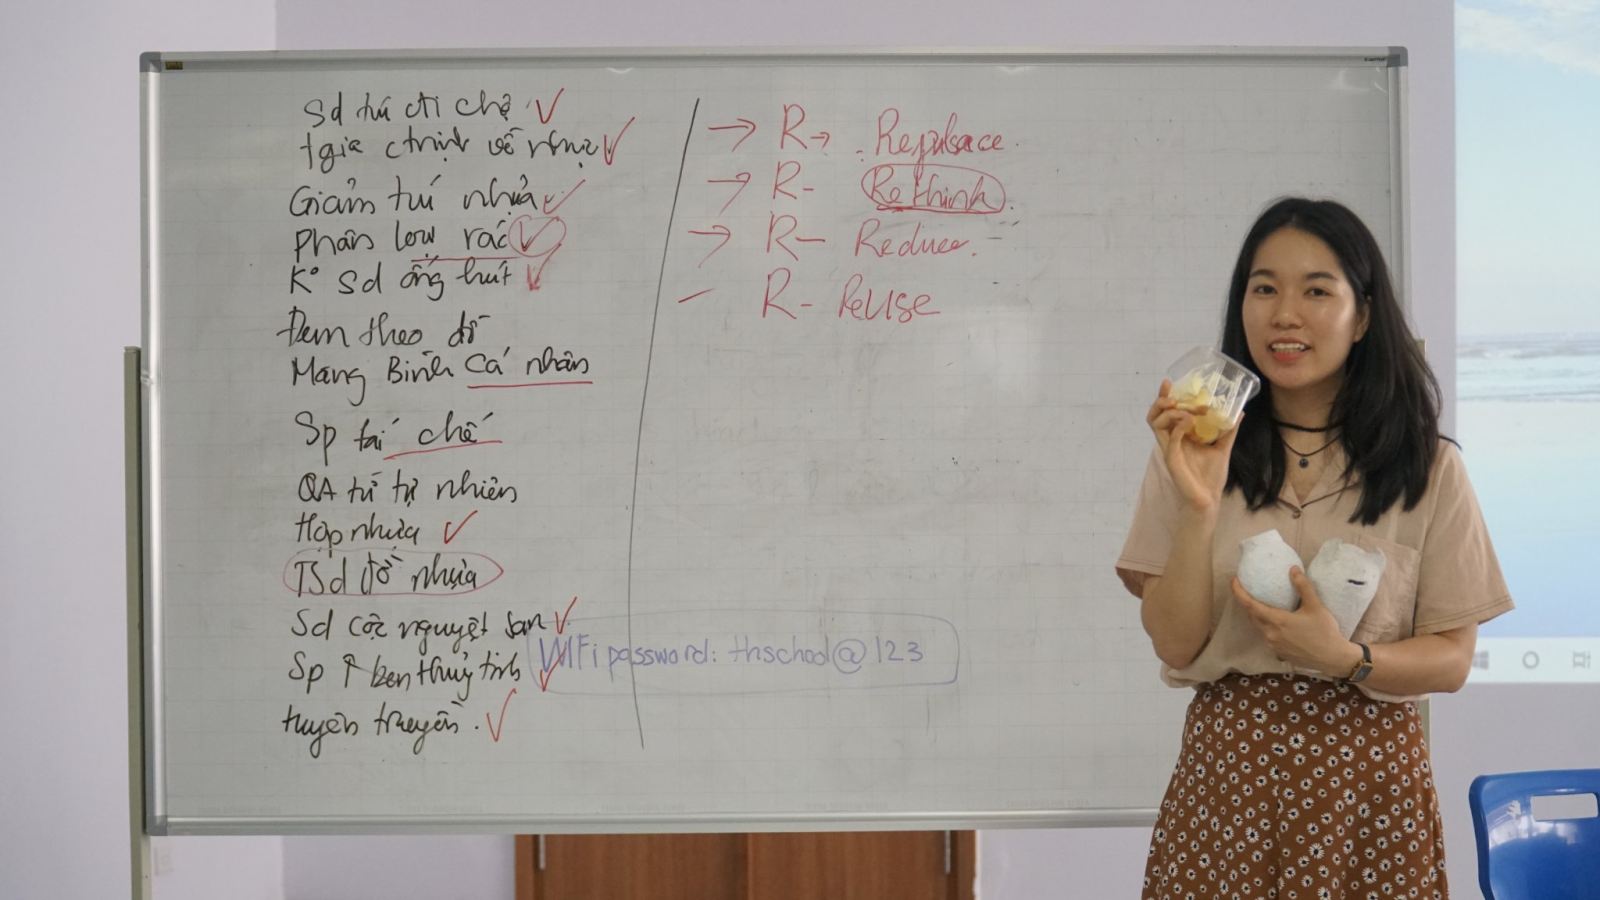 Sd túi đi chợ
tgia ctrình về nhựa
Giảm túi nhựa
phân loại rác
K° Sd ống hút
Đem theo đồ
Mang Bình cá nhân
Sp tái chế
QA từ tự nhiên
Hộp nhựa
TSd đồ nhựa
Sd cốc nguyệt san
Sp ↑ ben thuỷ tinh
tuyên truyền.
→ R→
→ R- Rethink
→ R- Reduce.
- R- ReUse
WIFi password: thschool@123